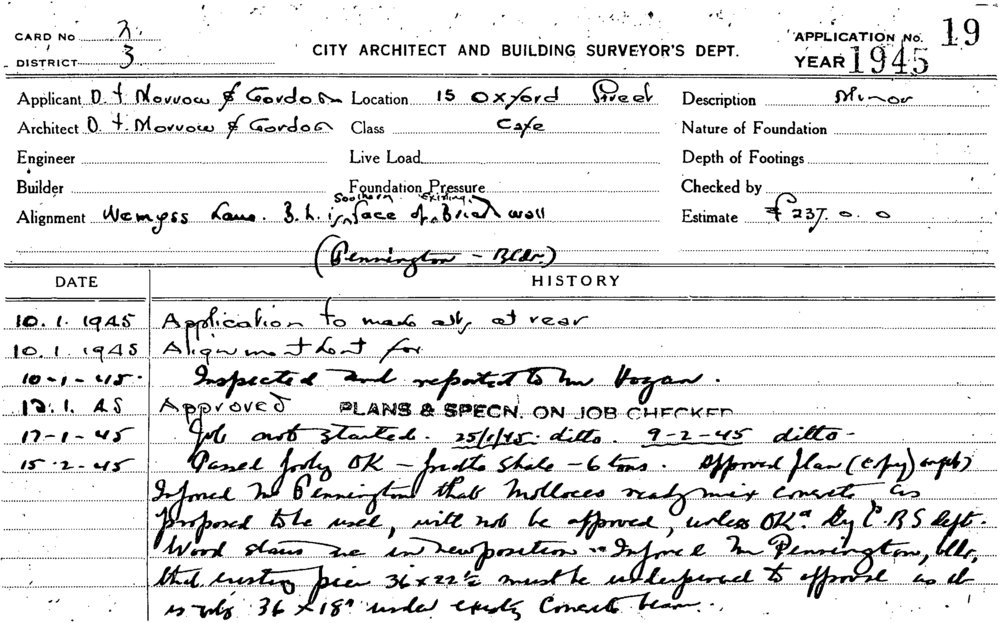 CARD No 2
DISTRICT 3
CITY ARCHITECT AND BUILDING SURVEYOR'S DEPT.
APPLICATION No. 19
YEAR 1945
Applicant D. T. Morrow & Gordon Location 15 Oxford Street Description Minor
Architect D. T. Morrow & Gordon Class Cafe Nature of Foundation
Engineer Live Load Depth of Footings
Builder Foundation Pressure Checked by
Southern Existing
Alignment Wemyss Lane. B.L. is face of Brick wall Estimate £237. 0. 0
(Pennington - Bldr.)
DATE HISTORY
10. 1. 1945 Application to make alts at rear
10. 1. 1945 Alignment for
10-1-45. Inspected and reported to Mr Hogan.
12. 1. 45 Approved PLANS & SPECN. ON JOB CHECKED
17-1-45 Job not started. 25/1/45. ditto. 9-2-45 ditto.
15-2-45 Passed footg OK - Shale - 6 tons. Approved plan (copy)
Informed Mr Pennington that ready mix concrete, as
proposed to be used, will not be approved, unless OKd by C.B.S dept.
Wood stairs are in new position - Informed Mr Pennington, bldr,
that existing pier 36 x 22½ must be underpinned to approval as it
is only 36 x 18" under existg Concrete beam.